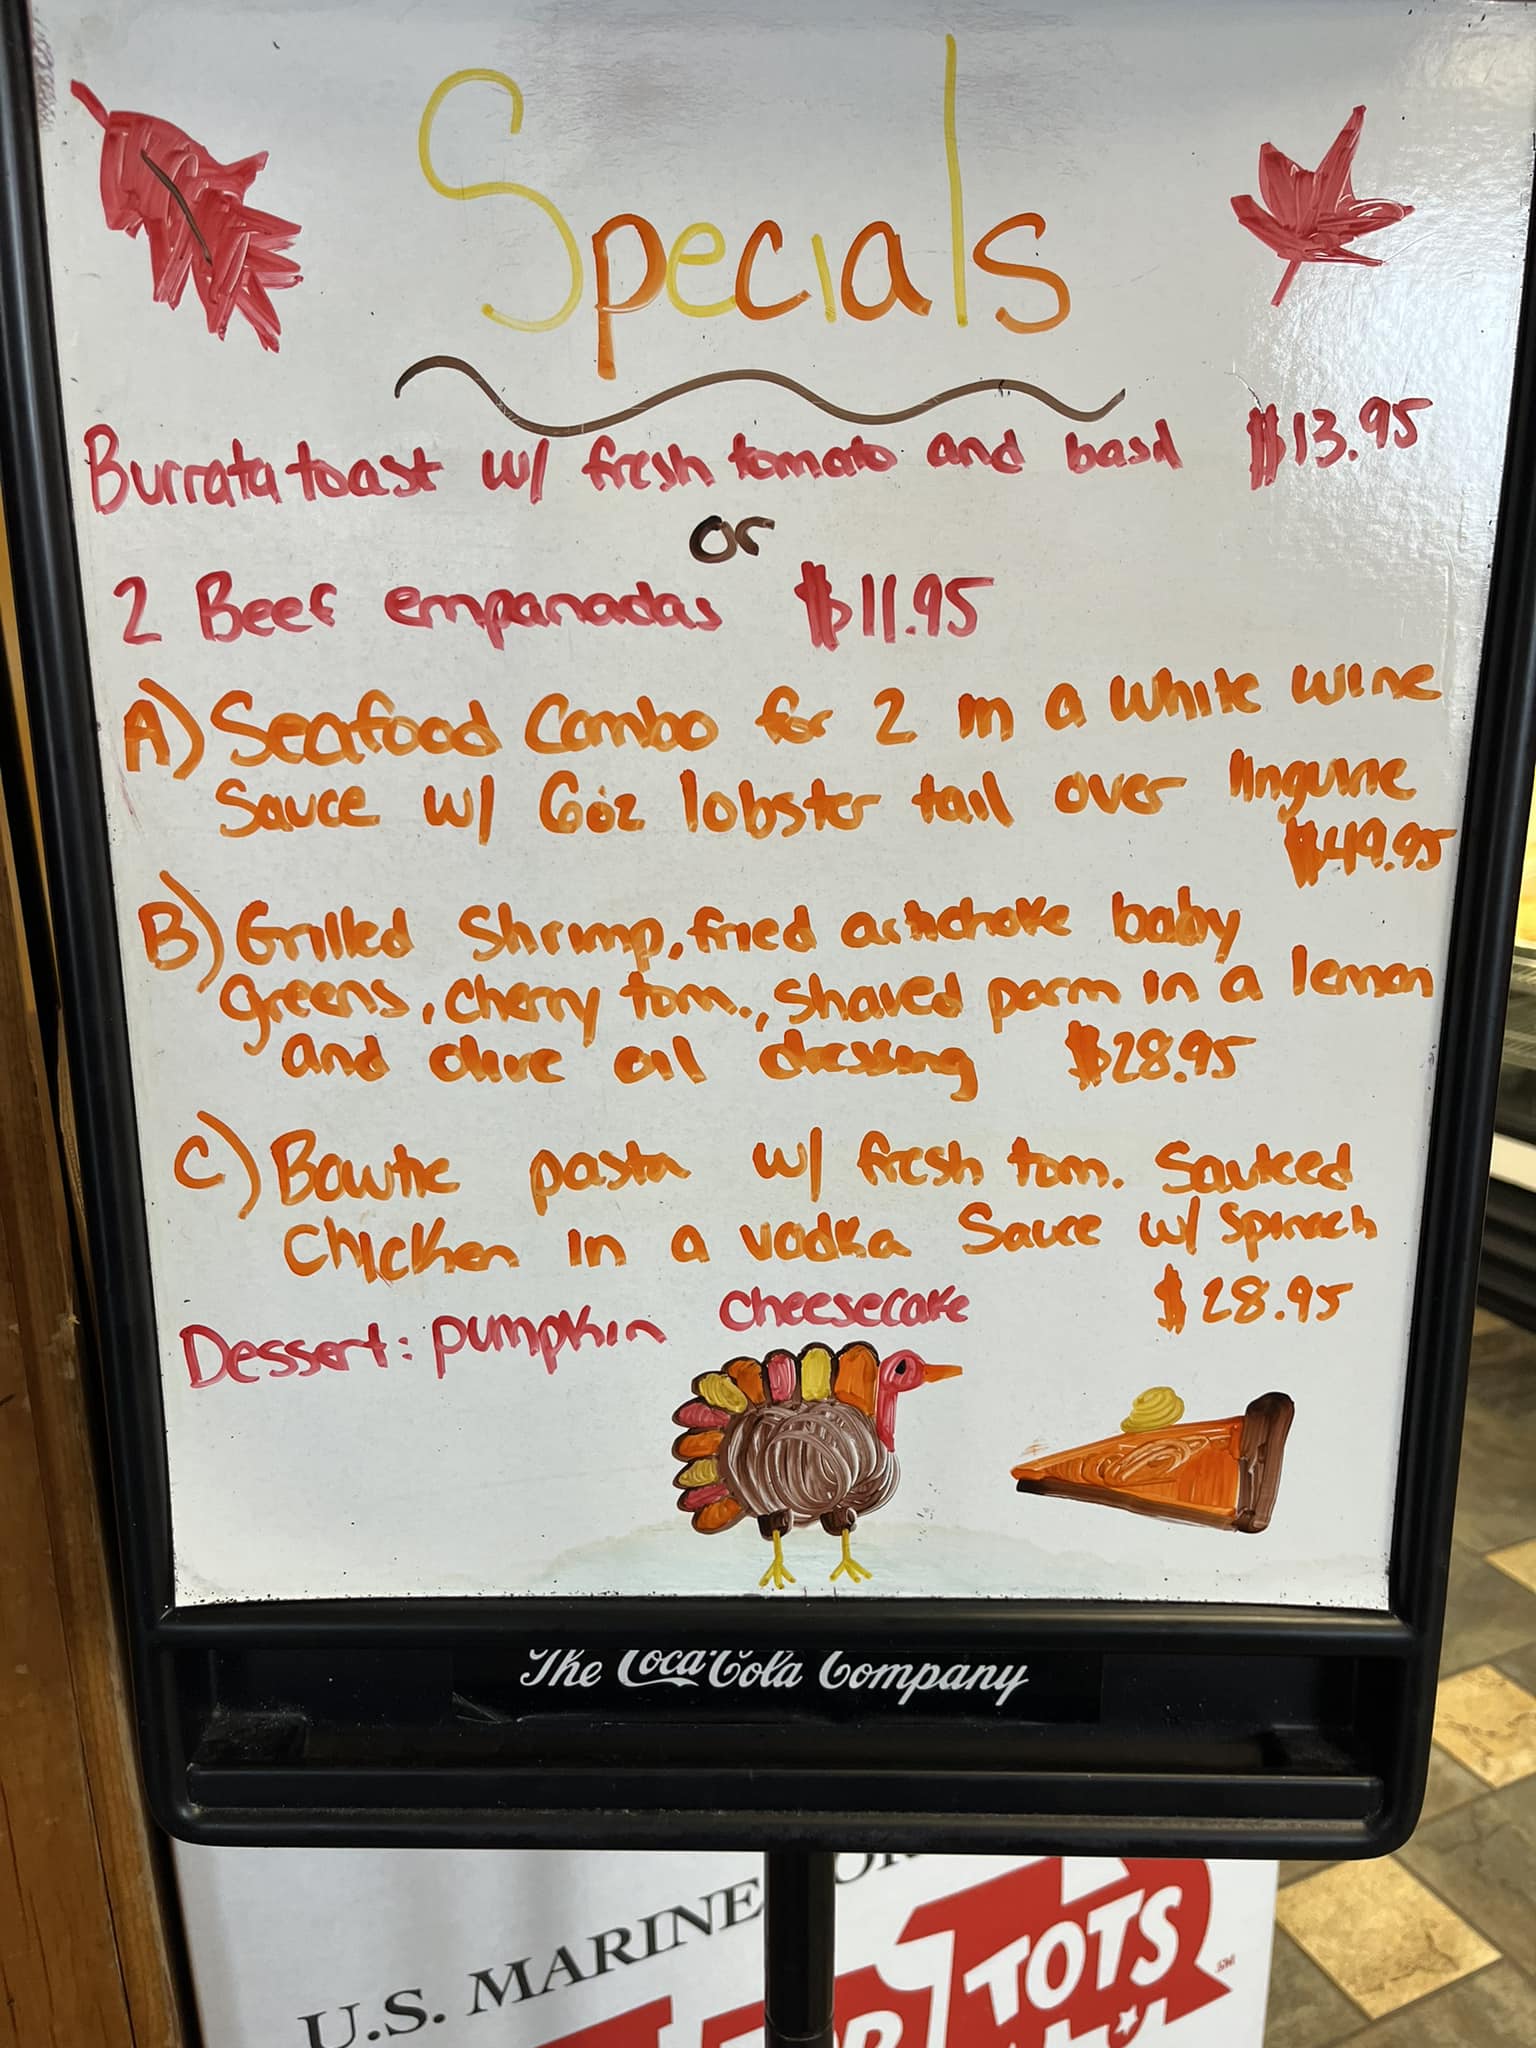 Specials
Burrata toast w/ fresh tomato and basil $13.95
or
2 Beef empanadas $11.95
A) Seafood Combo for 2 in a white wine
Sauce w/ 6oz lobster tail over linguine
$49.95
B) Grilled Shrimp, fried artichoke baby
greens, cherry tom., shaved parm in a lemon
and olive oil dressing $28.95
C) Bowtie pasta w/ fresh tom. Sauteed
Chicken in a vodka Sauce w/ spinach
$28.95
Dessert: pumpkin cheesecake
The Coca-Cola Company
U.S. MARINE
TOTS